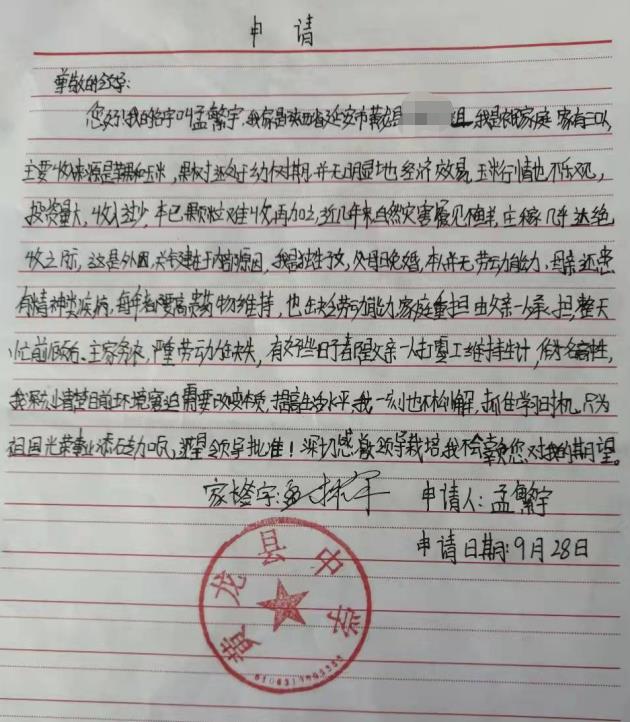 申 请
尊敬的领导:
您好!我的名字叫孟繁宇,我家是陕西省延安市黄龙县 组,我是农村家庭 家有三口人,
主要收入来源是苹果和玉米,果树还处于幼树期并无明显地经济效易,玉米行情也不乐观,
投资量大,收入过少,本已颗粒难收再加之,近几年来自然灾害屡见不鲜,庄稼几乎达绝
收之际,这是外因,关键在于内部原因,我是独生子女,父母晚婚,本人并无劳动能力,母亲还患
有精神类疾病,每年都要高贵药物维持,也缺乏劳动能力,家庭重担由父亲一人承担,整天
忙前顾后、主家务农,严重劳动力缺失,有好些时日都是父亲一人打零工维持生计,
我深知清楚目前环境窘迫需要改变本质,提高生活水平,我一刻也不松懈,抓住学习时机,只为
祖国光荣事业添石加瓦,遥望领导批准!深切感激领导栽培,我不会辜负您对我的期望。
家长签字: 申请人:孟繁宇
申请日期:9月28日
黄龙县中学